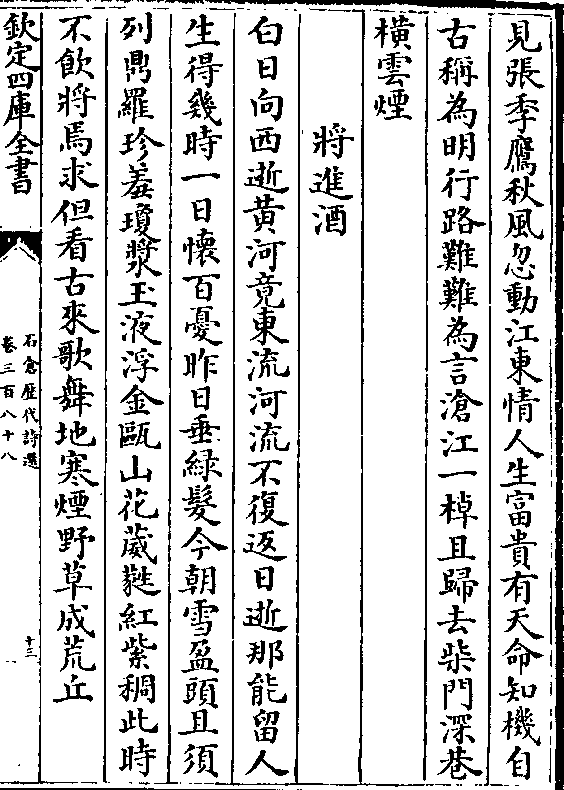 見張季鷹秋風忽動江東情人生富貴有天命知機自
古稱為明行路難難為言滄江一棹且歸去柴門深巷
橫雲煙
將進酒
白日向西逝黄河竟東流河流不復返日逝那能留人
生得幾時一日懷百憂昨日垂緑髮今朝雪盈頭且須
列鼎羅珍羞瓊漿玉液浮金甌山花葳蕤紅紫稠此時
不飲將焉求但看古來歌舞地寒煙野草成荒丘
欽定四庫全書
石倉歷代詩選
卷三百八十八
十三